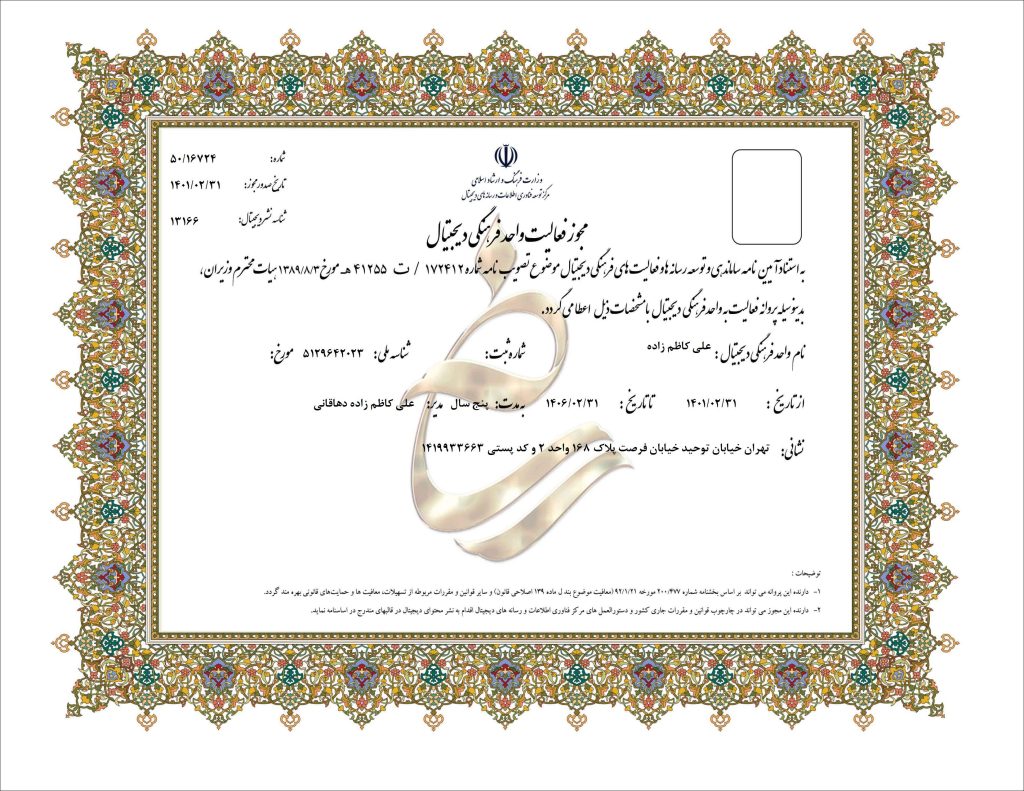 وزارت فرهنگ و ارشاد اسلامی
مرکز توسعه فناوری اطلاعات و رسانه های دیجیتال
شماره: ۵۰/۱۶۷۲۴
تاریخ صدور مجوز: ۱۴۰۱/۰۲/۳۱
شناسه نشر دیجیتال: ۱۳۱۶۶
مجوز فعالیت واحد فرهنگی دیجیتال
به استناد آیین نامه ساماندهی و توسعه رسانه ها و فعالیت های فرهنگی دیجیتال موضوع تصویب نامه شماره ۱۷۲۴۱۲ / ت ۴۱۲۵۵ هـ مورخ ۱۳۸۹/۸/۳ هیات محترم وزیران،
بدینوسیله پروانه فعالیت به واحد فرهنگی دیجیتال با مشخصات ذیل اعطا می گردد.
نام واحد فرهنگی دیجیتال : علی کاظم زاده شماره ثبت: شناسه ملی: ۵۱۲۹۶۴۲۰۲۳ مورخ:
از تاریخ : ۱۴۰۱/۰۲/۳۱ تا تاریخ : ۱۴۰۶/۰۲/۳۱ به مدت: پنج سال مدیر: علی کاظم زاده دهاقانی
نشانی: تهران خیابان توحید خیابان فرصت پلاک ۱۶۸ واحد ۲ و کد پستی ۱۴۱۹۹۳۳۶۶۳
توضیحات :
۱- دارنده این پروانه می تواند بر اساس بخشنامه شماره ۲۰۰/۴۷۷ مورخه ۹۲/۱/۲۱ (معافیت موضوع بند ل ماده ۱۳۹ اصلاحی قانون) و سایر قوانین و مقررات مربوطه از تسهیلات، معافیت ها و حمایت‌های قانونی بهره مند گردد.
۲- دارنده این مجوز می تواند در چارچوب قوانین و مقررات جاری کشور و دستورالعمل های مرکز فناوری اطلاعات و رسانه های دیجیتال اقدام به نشر محتوای دیجیتال در قالبهای مندرج در اساسنامه نماید.